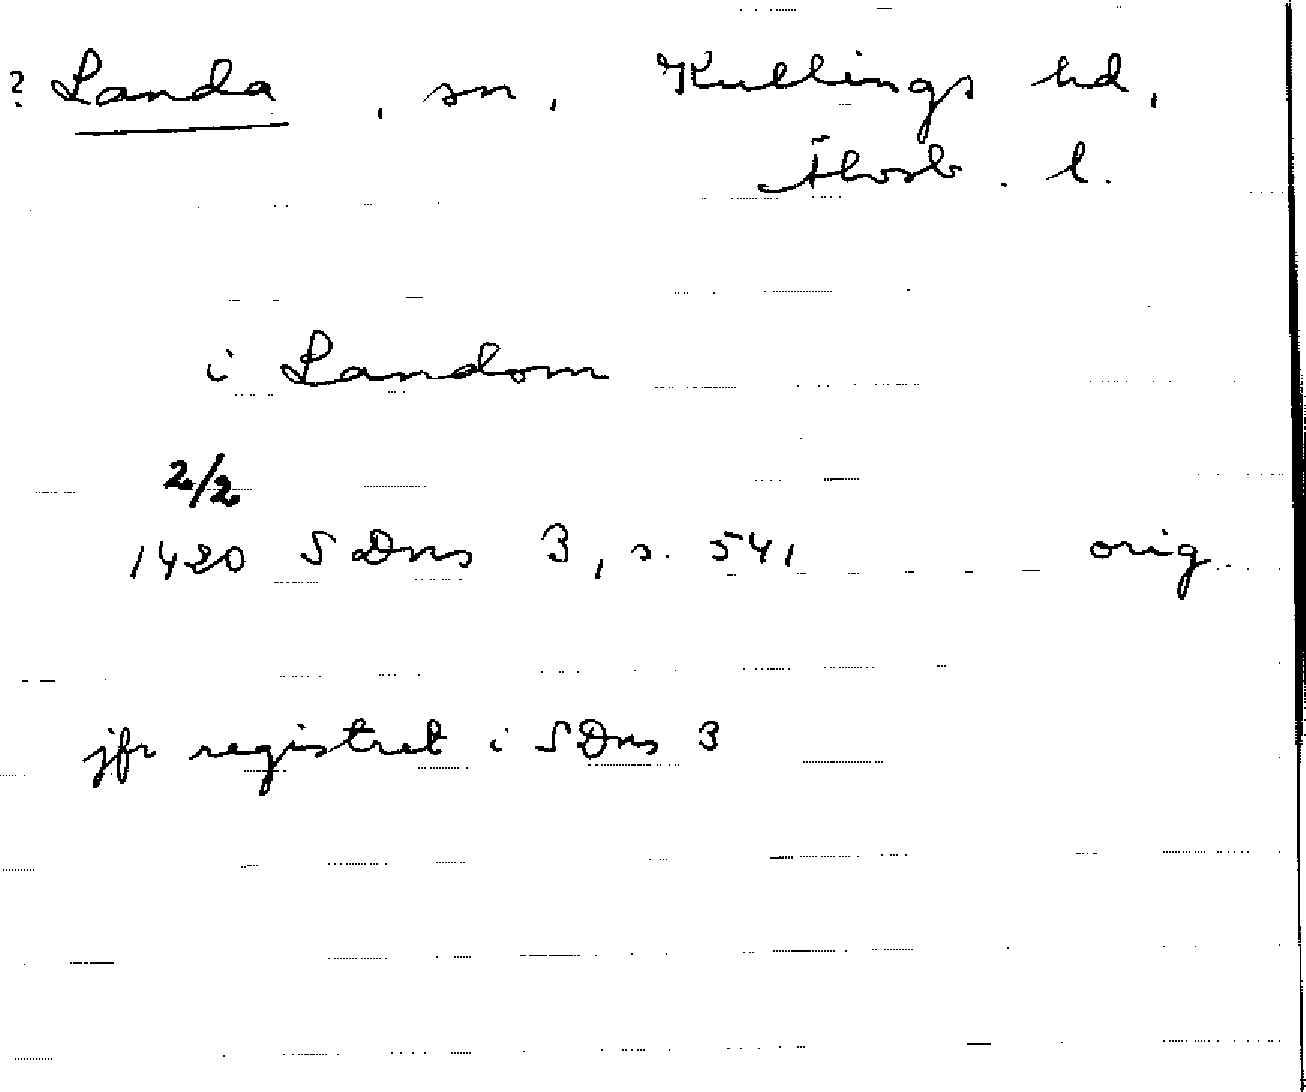 ? Landa , sn , Kullings hd,
Älvsb. l.
i Landom
2/2
1420 SDns 3, s. 541 orig.
jfr registret i SDns 3